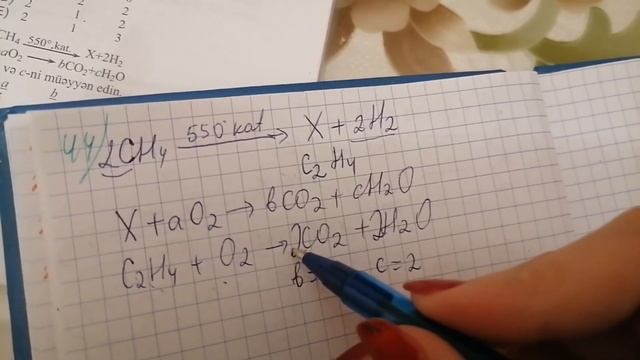 2 2
E) 2 1 2
1 3
CH₄ 550°.kat. X+2H₂
aO₂ ⟶ bCO₂+cH₂O
və c-ni müəyyən edin.
a b
44) 2CH₄ 550 kat ⟶ X + 2H₂
C₂H₄
X + aO₂ → bCO₂ + cH₂O
C₂H₄ + O₂ → 2CO₂ + 2H₂O
b= c=2